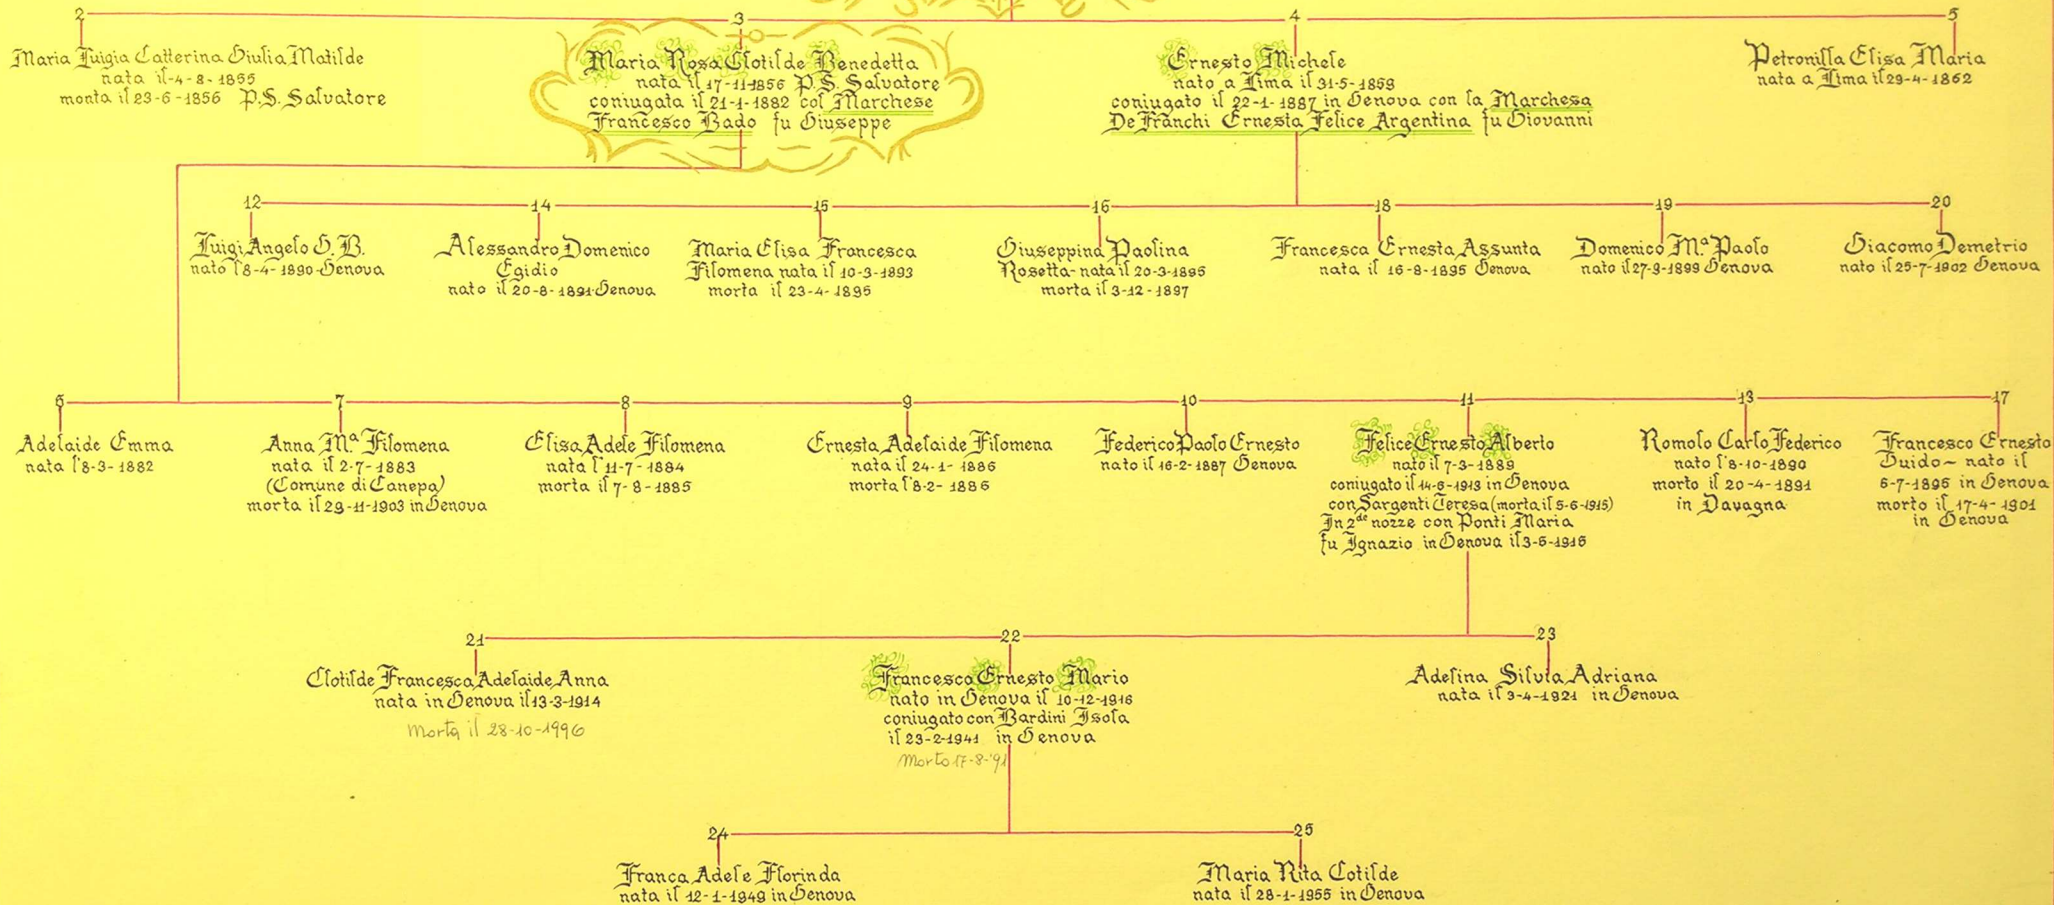 2
Maria Luigia Catterina Giulia Matilde
nata il 4-8-1855
morta il 23-6-1856 P.S. Salvatore
3
Maria Rosa Clotilde Benedetta
nata il 17-11-1856 P.S. Salvatore
coniugata il 21-1-1882 col Marchese
Francesco Bado fu Giuseppe
4
Ernesto Michele
nato a Lima il 31-5-1859
coniugato il 22-1-1887 in Genova con la Marchesa
De Franchi Ernesta Felice Argentina fu Giovanni
5
Petronilla Elisa Maria
nata a Lima il 29-4-1862
12
Luigi Angelo G.B.
nato l'8-4-1890-Genova
14
Alessandro Domenico
Egidio
nato il 20-8-1891-Genova
15
Maria Elisa Francesca
Filomena nata il 10-3-1893
morta il 23-4-1895
16
Giuseppina Paolina
Rosetta-nata il 20-3-1895
morta il 3-12-1897
18
Francesca Ernesta Assunta
nata il 16-8-1895 Genova
19
Domenico M.ª Paolo
nato il 27-9-1899 Genova
20
Giacomo Demetrio
nato il 25-7-1902 Genova
6
Adelaide Emma
nata l'8-3-1882
7
Anna M.ª Filomena
nata il 2-7-1883
(Comune di Canepa)
morta il 29-11-1903 in Genova
8
Elisa Adele Filomena
nata l'11-7-1884
morta il 7-8-1885
9
Ernesta Adelaide Filomena
nata il 24-1-1886
morta l'8-2-1886
10
Federico Paolo Ernesto
nato il 16-2-1887 Genova
11
Felice Ernesto Alberto
nato il 7-3-1889
coniugato il 14-6-1913 in Genova
con Sargenti Teresa (morta il 5-6-1915)
In 2de nozze con Ponti Maria
fu Ignazio in Genova il 3-6-1916
13
Romolo Carlo Federico
nato l'8-10-1890
morto il 20-4-1891
in Davagna
17
Francesco Ernesto
Guido - nato il
6-7-1896 in Genova
morto il 17-4-1901
in Genova
21
Clotilde Francesca Adelaide Anna
nata in Genova il 13-3-1914
Morta il 28-10-1996
22
Francesco Ernesto Mario
nato in Genova il 10-12-1916
coniugato con Bardini Isola
il 23-2-1941 in Genova
Morto 17-8-'91
23
Adelina Silvia Adriana
nata il 3-4-1921 in Genova
24
Franca Adele Florinda
nata il 12-1-1949 in Genova
25
Maria Rita Cotilde
nata il 28-1-1955 in Genova